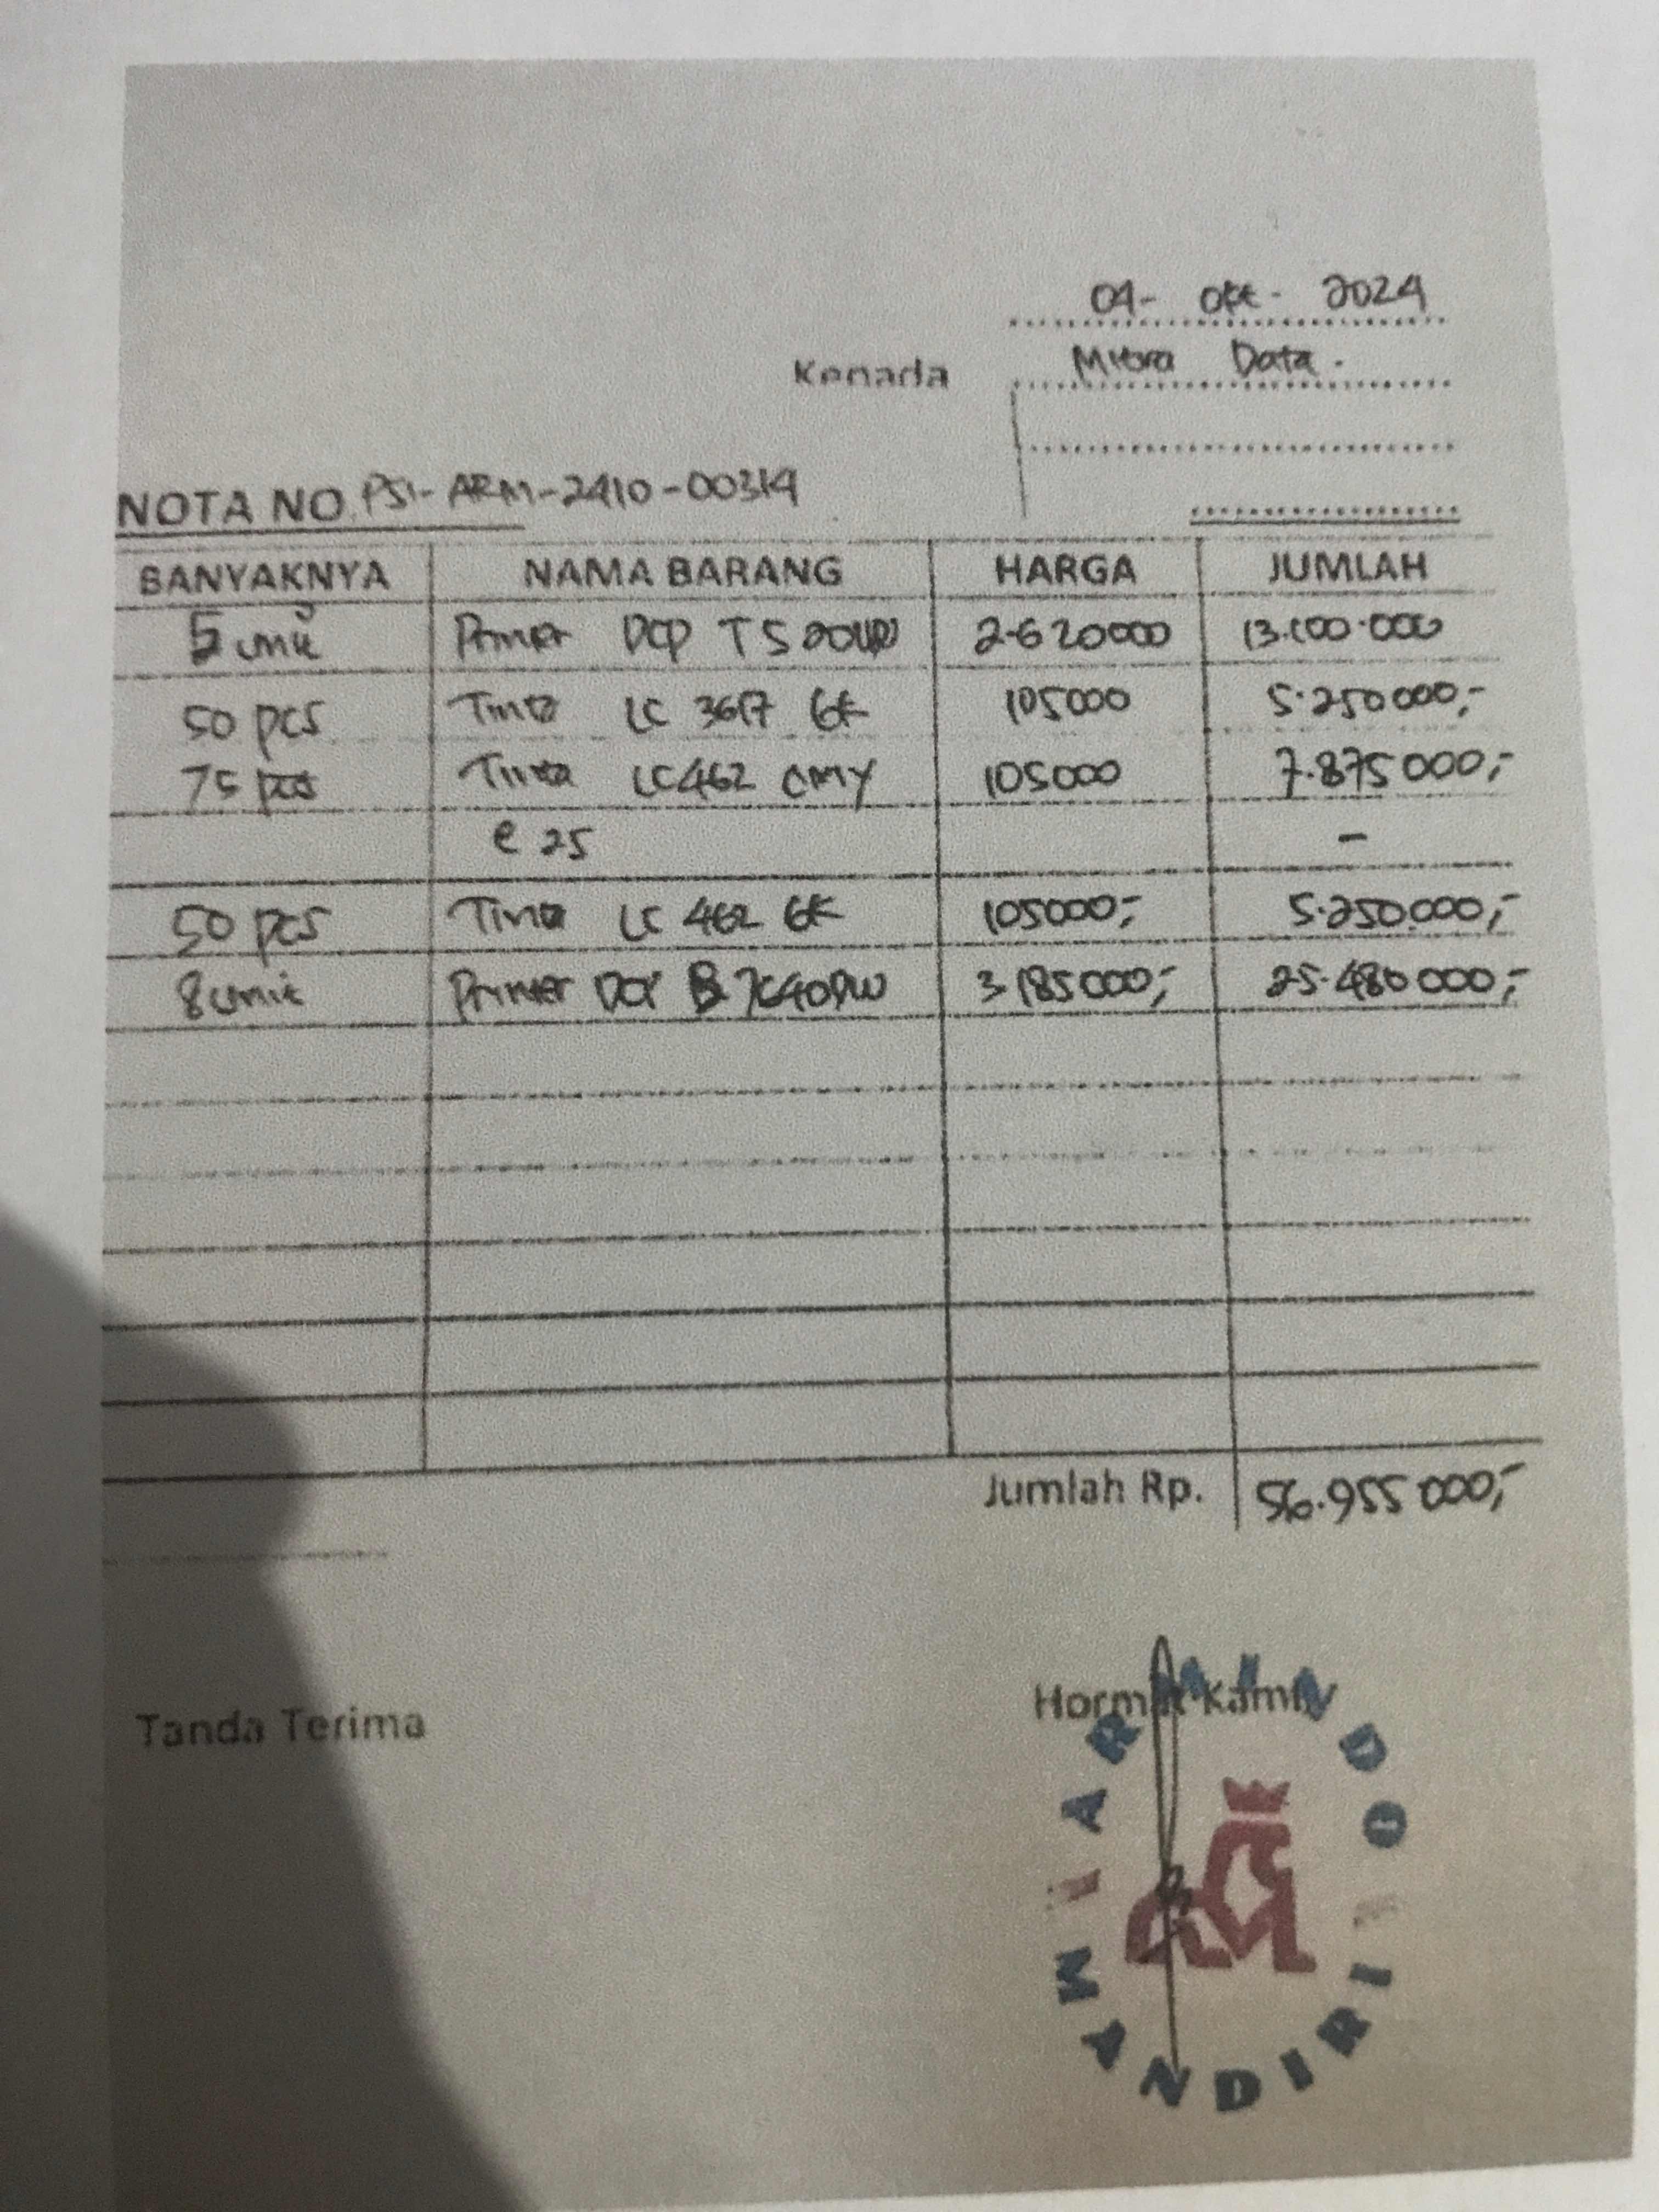 04- Okt- 2024
Kepada Mitra Data.
NOTA NO. PSI-ARM-2410-00314
BANYAKNYA NAMA BARANG HARGA JUMLAH
5 unit Printer DCP T520W 2.620000 13.100.000
50 pcs Tinta LC 3617 BK 105000 5.250000,-
75 pcs Tinta LC462 CMY 105000 7.875000,-
@ 25 -
50 pcs Tinta LC 462 BK 105000,- 5.250.000,-
8 unit Printer DCP B7640DW 3185000,- 25.480000,-
Jumlah Rp. 56.955000,-
Tanda Terima
Hormat Kami
ARMINDO
MANDIRI